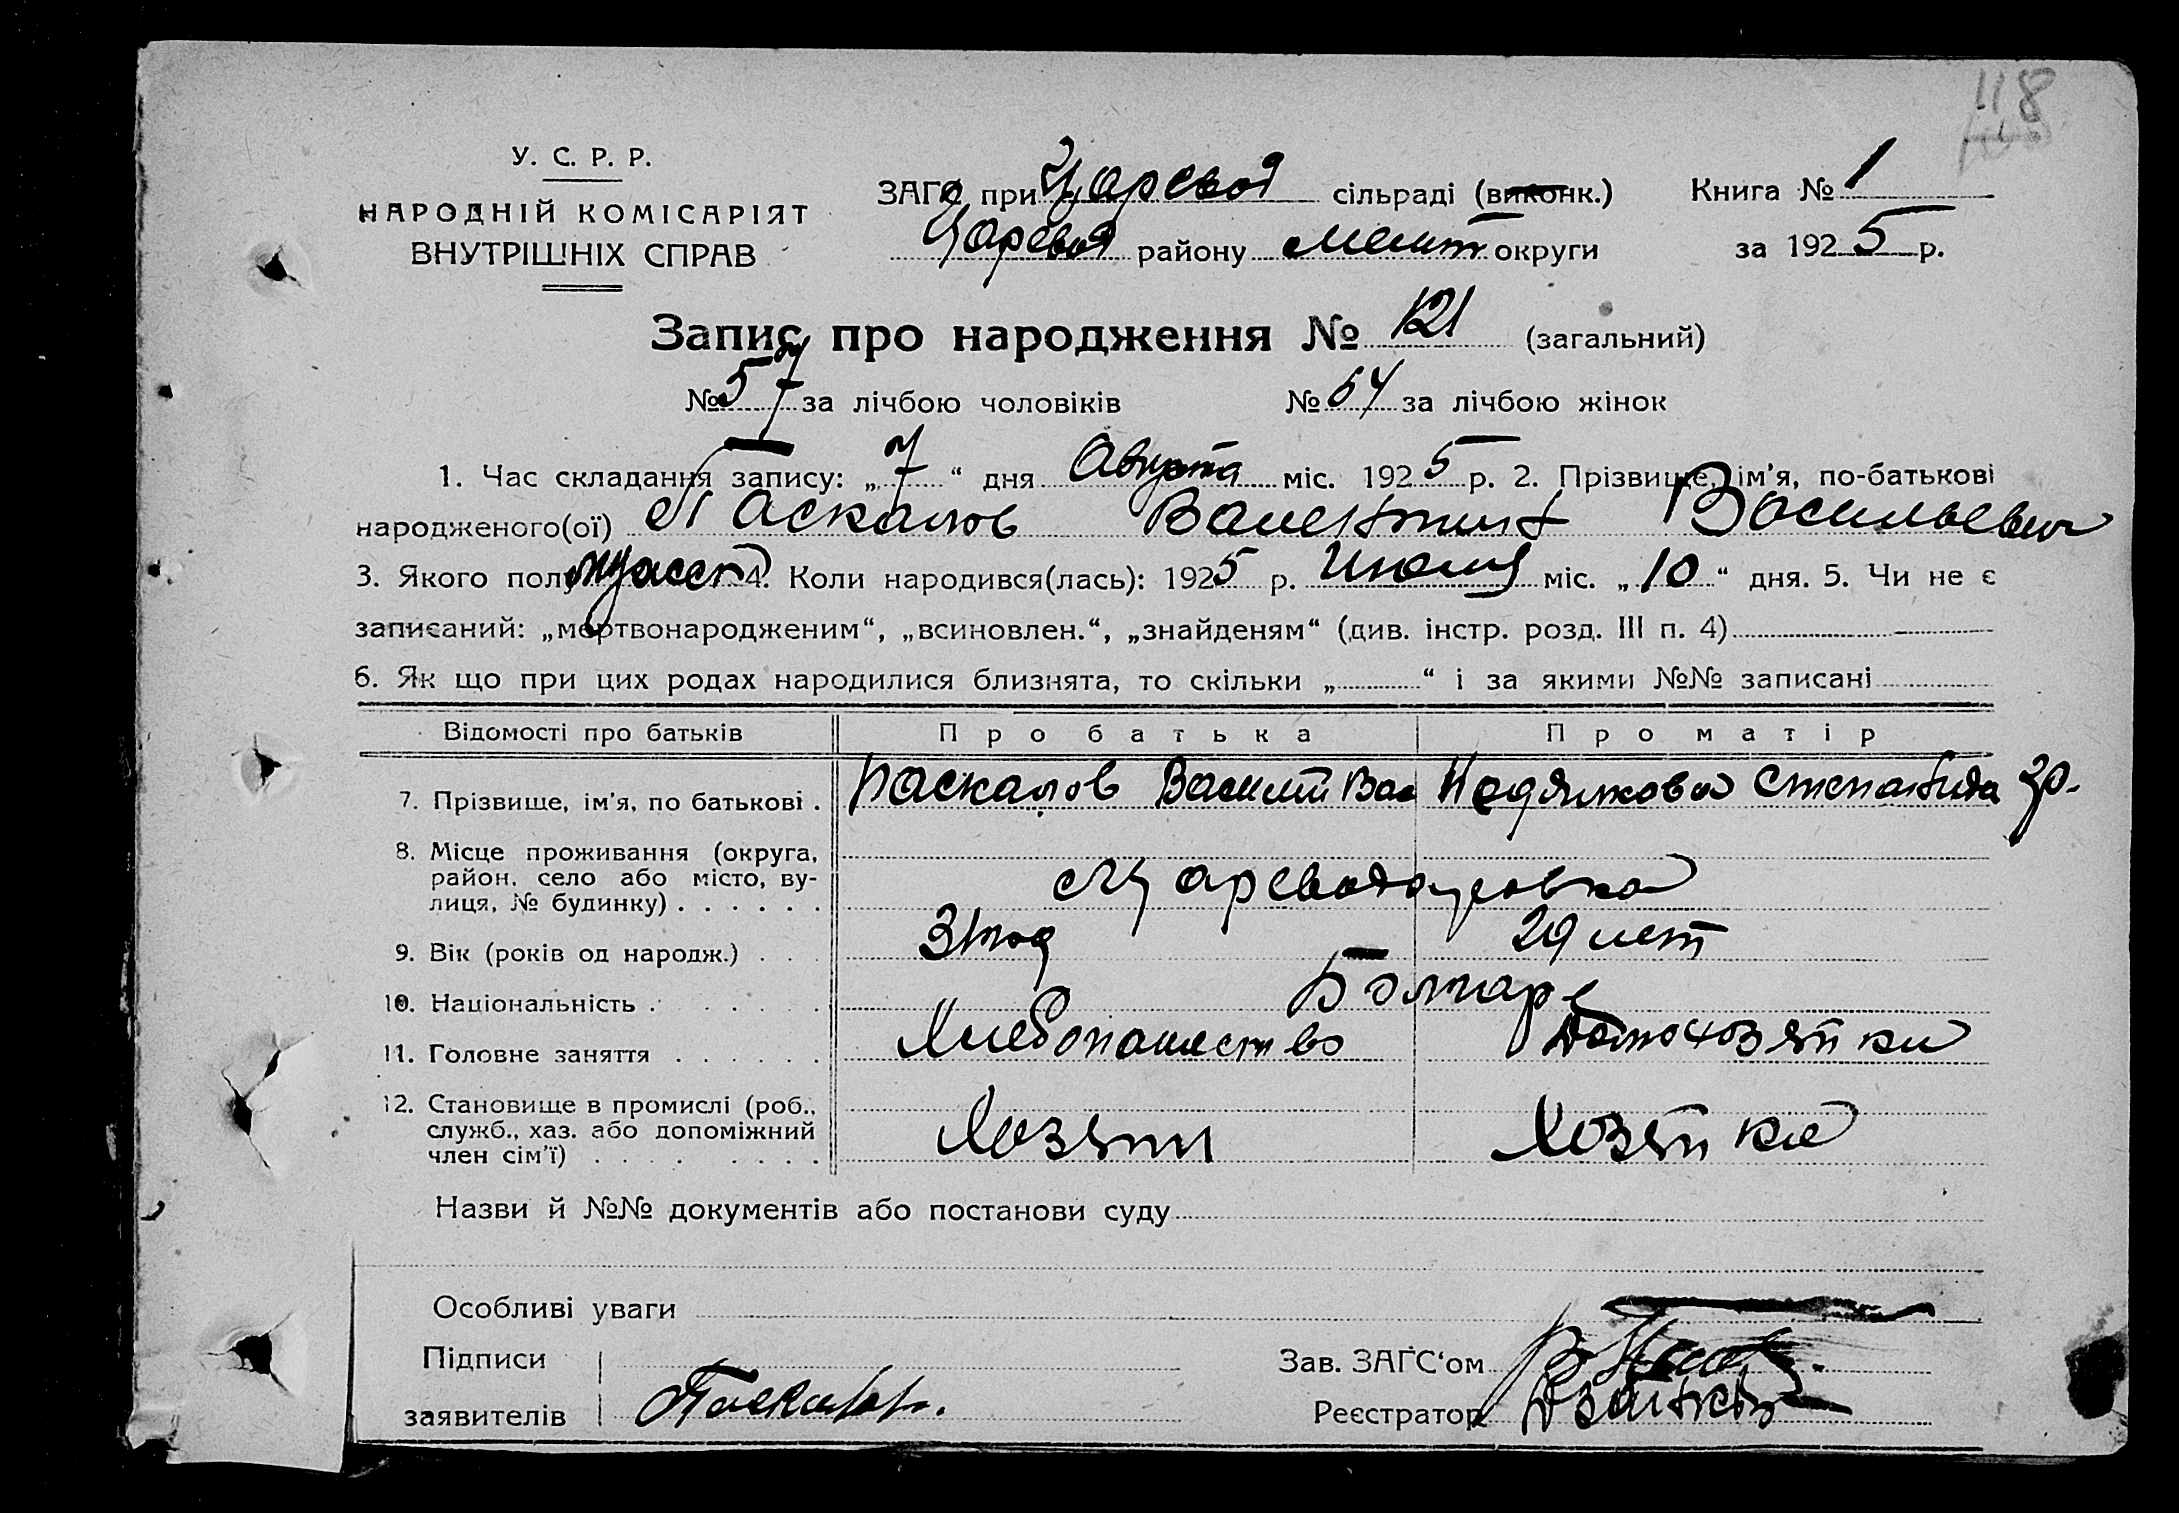 118
У. С. Р. Р.
НАРОДНІЙ КОМІСАРІЯТ
ВНУТРІШНІХ СПРАВ
ЗАГС при Царевод сільраді (виконк.) Книга № 1
Царевод району Мелит округи за 1925 р.
Запис про народження № 121 (загальний)
№ 57 за лічбою чоловіків № 64 за лічбою жінок
1. Час складання запису: „7“ дня Августа міс. 1925 р. 2. Прізвище, ім'я, по-батькові
народженого(ої) Паскалов Валентин Васильевич
3. Якого полу мужск 4. Коли народився(лась): 1925 р. Июля міс. „10“ дня. 5. Чи не є
записаний: „мертвонародженим“, „всиновлен.“, „знайденям“ (див. інстр. розд. III п. 4)
6. Як що при цих родах народилися близнята, то скільки „ “ і за якими №№ записані
Відомості про батьків Про батька Про матір
7. Прізвище, ім'я, по батькові . Паскалов Василий Вас Недялкова Степанида Гр.
8. Місце проживання (округа,
район, село або місто, ву-
лиця, № будинку) . . . . . . с Цареводаровка
9. Вік (років од народж.) . . . 31 год 29 лет
10. Національність . . . . . . Болгаре
11. Головне заняття . . . . . . Хлебопашество Домохозяйки
12. Становище в промислі (роб.,
служб., хаз. або допоміжний
член сім'ї) . . . . . . . . Хозяин Хозяйка
Назви й №№ документів або постанови суду
Особливі уваги
Підписи
заявителів Паскалов.
Зав. ЗАГС'ом
Реєстратор